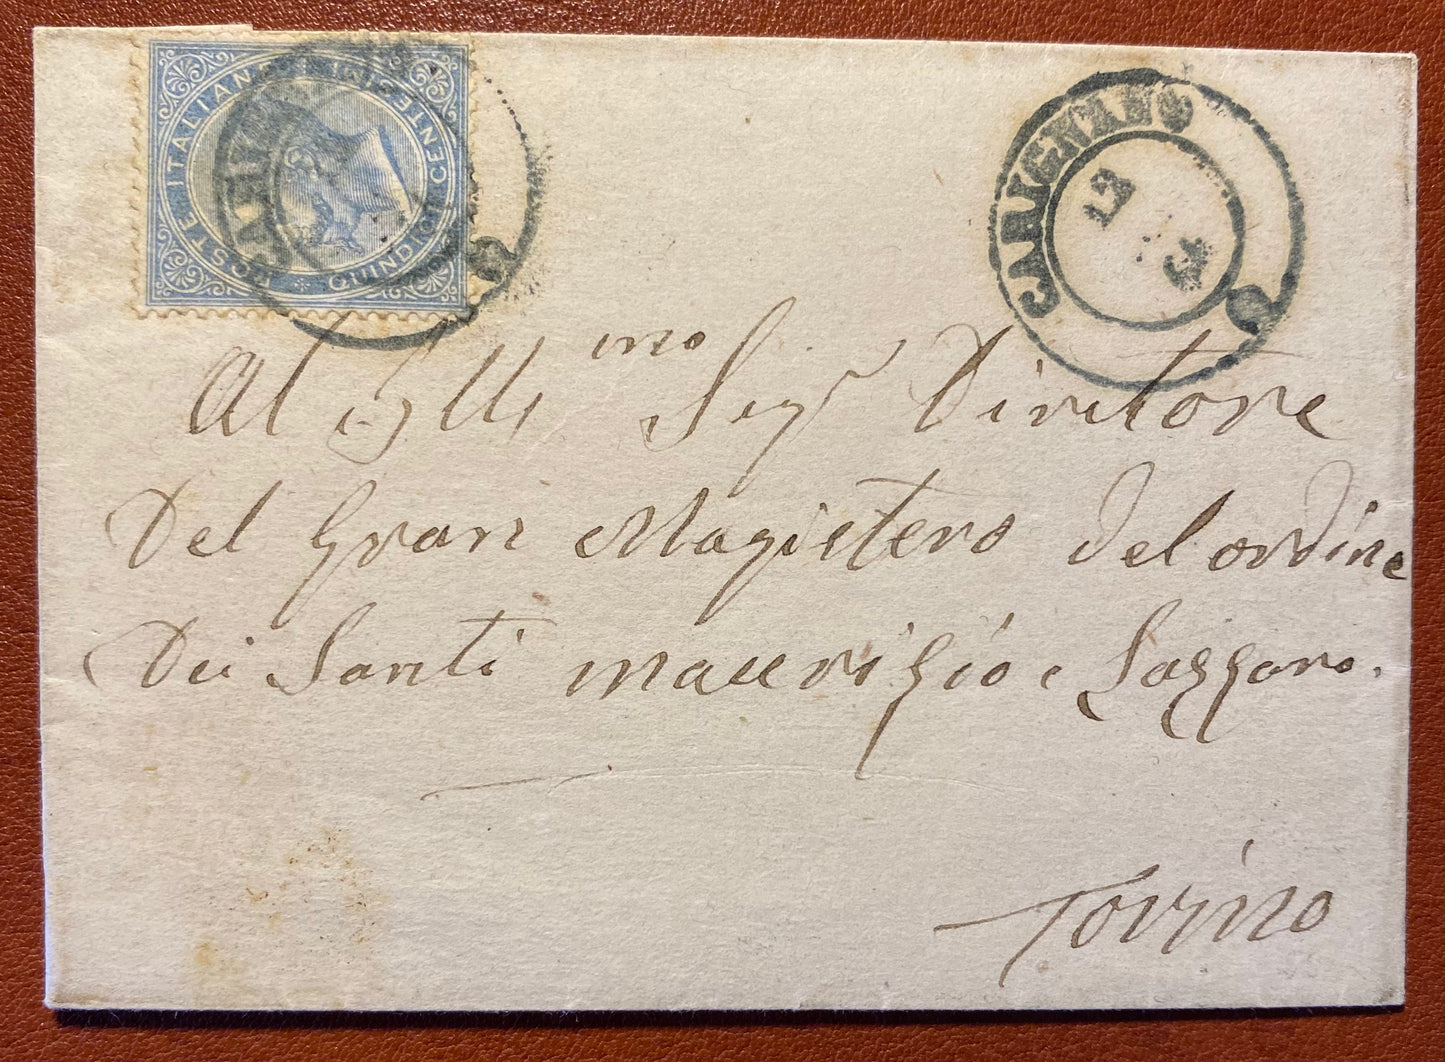 POSTE ITALIANE
QUINDICI CENTESIMI
CARIGNANO
12
64
Al Ill.mo Sigr Diretore
Del Gran Magistero del ordine
Dei Santi maurizio e Lazzaro.
Torino